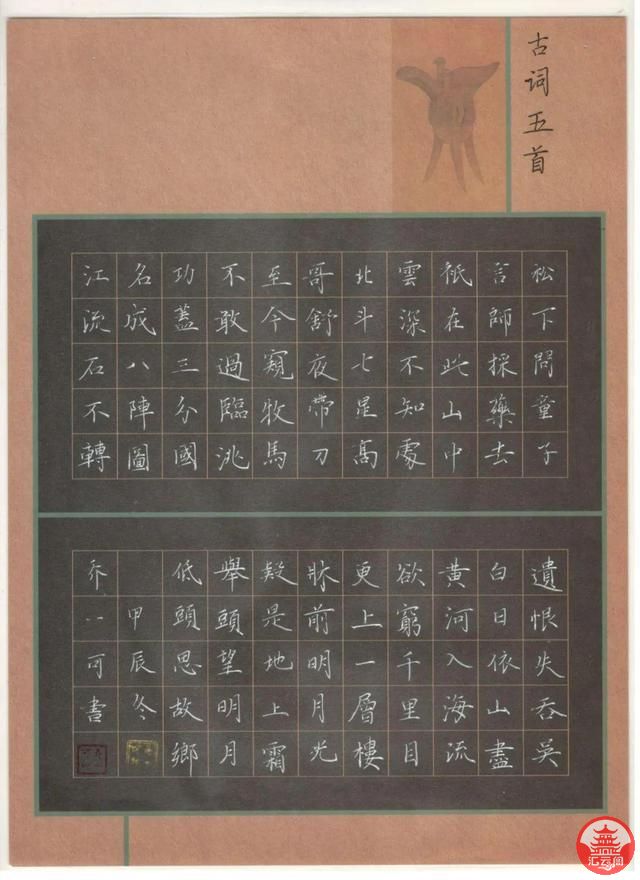 古词五首
松下問童子
言師採藥去
衹在此山中
雲深不知處
北斗七星高
哥舒夜帶刀
至今窺牧馬
不敢過臨洮
功蓋三分國
名成八陣圖
江流石不轉
遺恨失吞吳
白日依山盡
黃河入海流
欲窮千里目
更上一層樓
牀前明月光
疑是地上霜
舉頭望明月
低頭思故鄉
甲辰冬
乔一可書
汇云阁